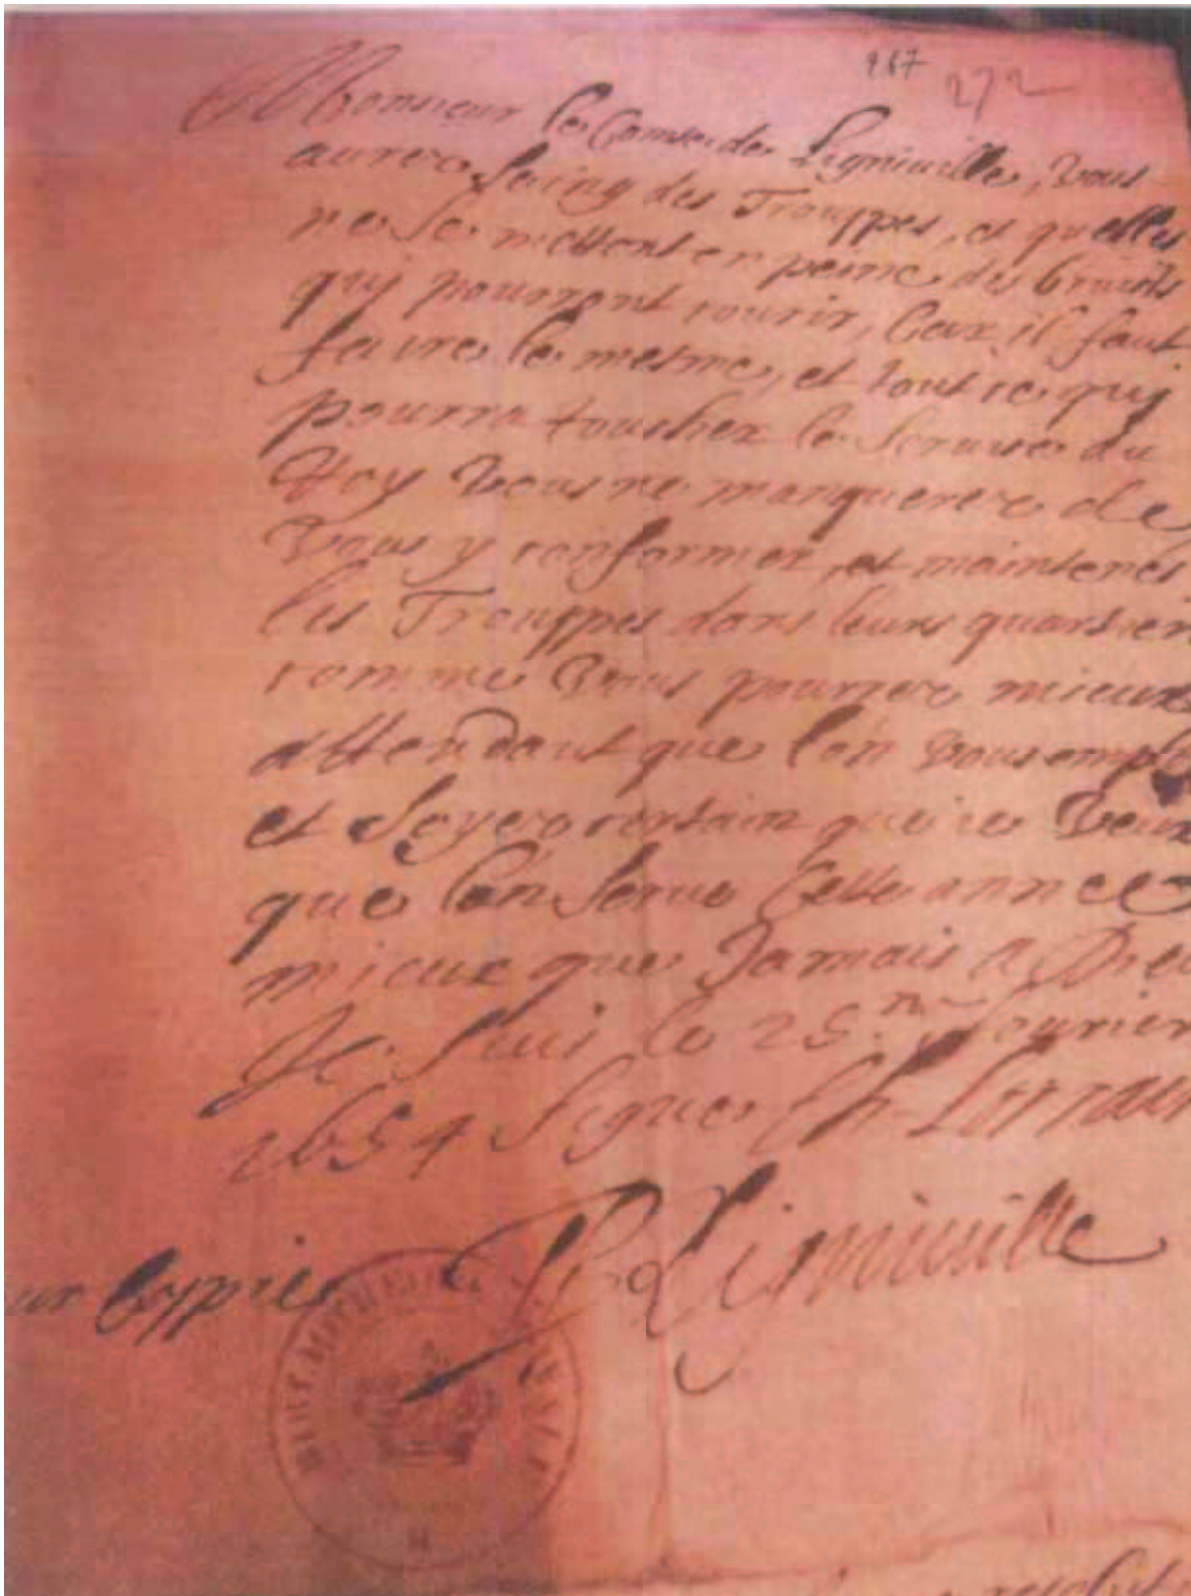 267 272
Monsieur le Comte de Ligniuille, vous
aurez soing des Trouppes, et quelles
ne se mettent en peine des bruits
qui pourront courir, Car il faut
suivre le mesme, et tout ce qui
pourra toucher le seruice du
Roy vous ne manquerez de
vous y conformer, et maintenés
les Trouppes dans leurs quartiers
comme vous pourrez mieux
attendant que lon vous emploie
et soyez certain que ie veux
que lon serue cette année
mieux que Jamais a Dieu
Je suis le 25.me feburier
1654 signé Ch. Lorraine
Pour Coppie Ligniuille
BIBLIOTHEQUE